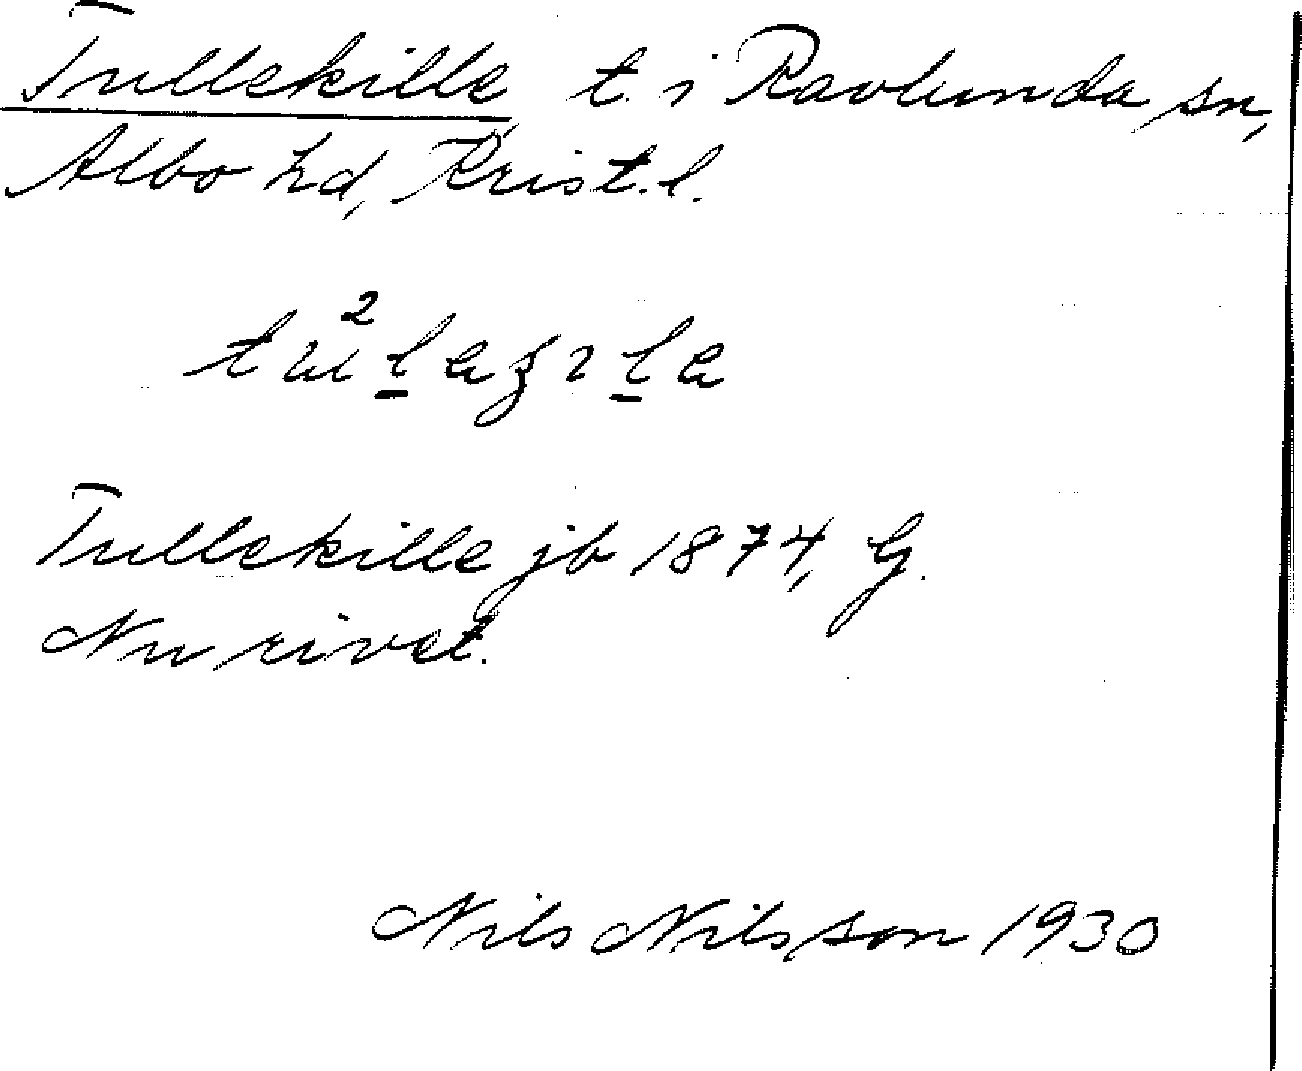 Tullekille t. i Ravlunda sn,
Albo hd, Krist. l.
Tullekille jb 1874, G.
Nu rivet.
Nils Nilsson 1930